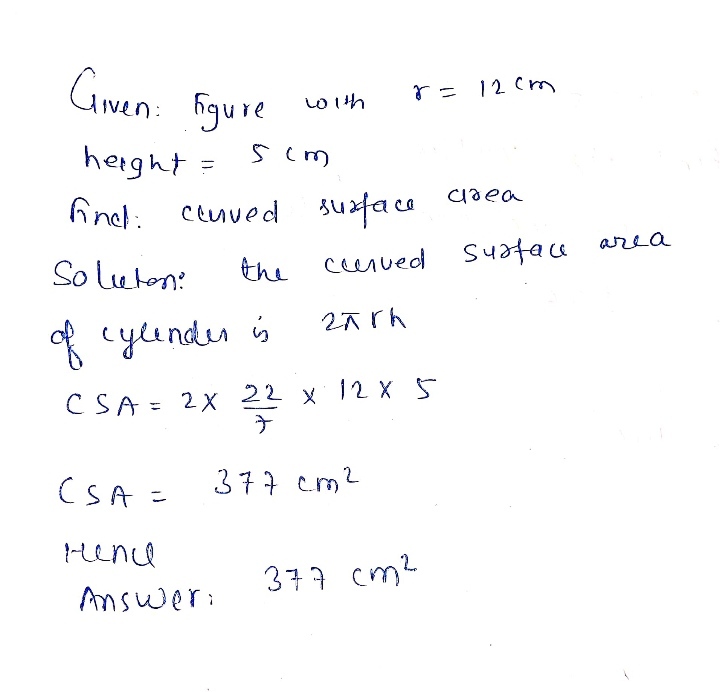 Given: figure with r = 12 cm
height = 5 cm
find: curved surface area
Soluton: the curved surface area
of cylender is 2πrh
CSA = 2 x 22/7 x 12 x 5
CSA = 377 cm²
Hence
Answer: 377 cm²